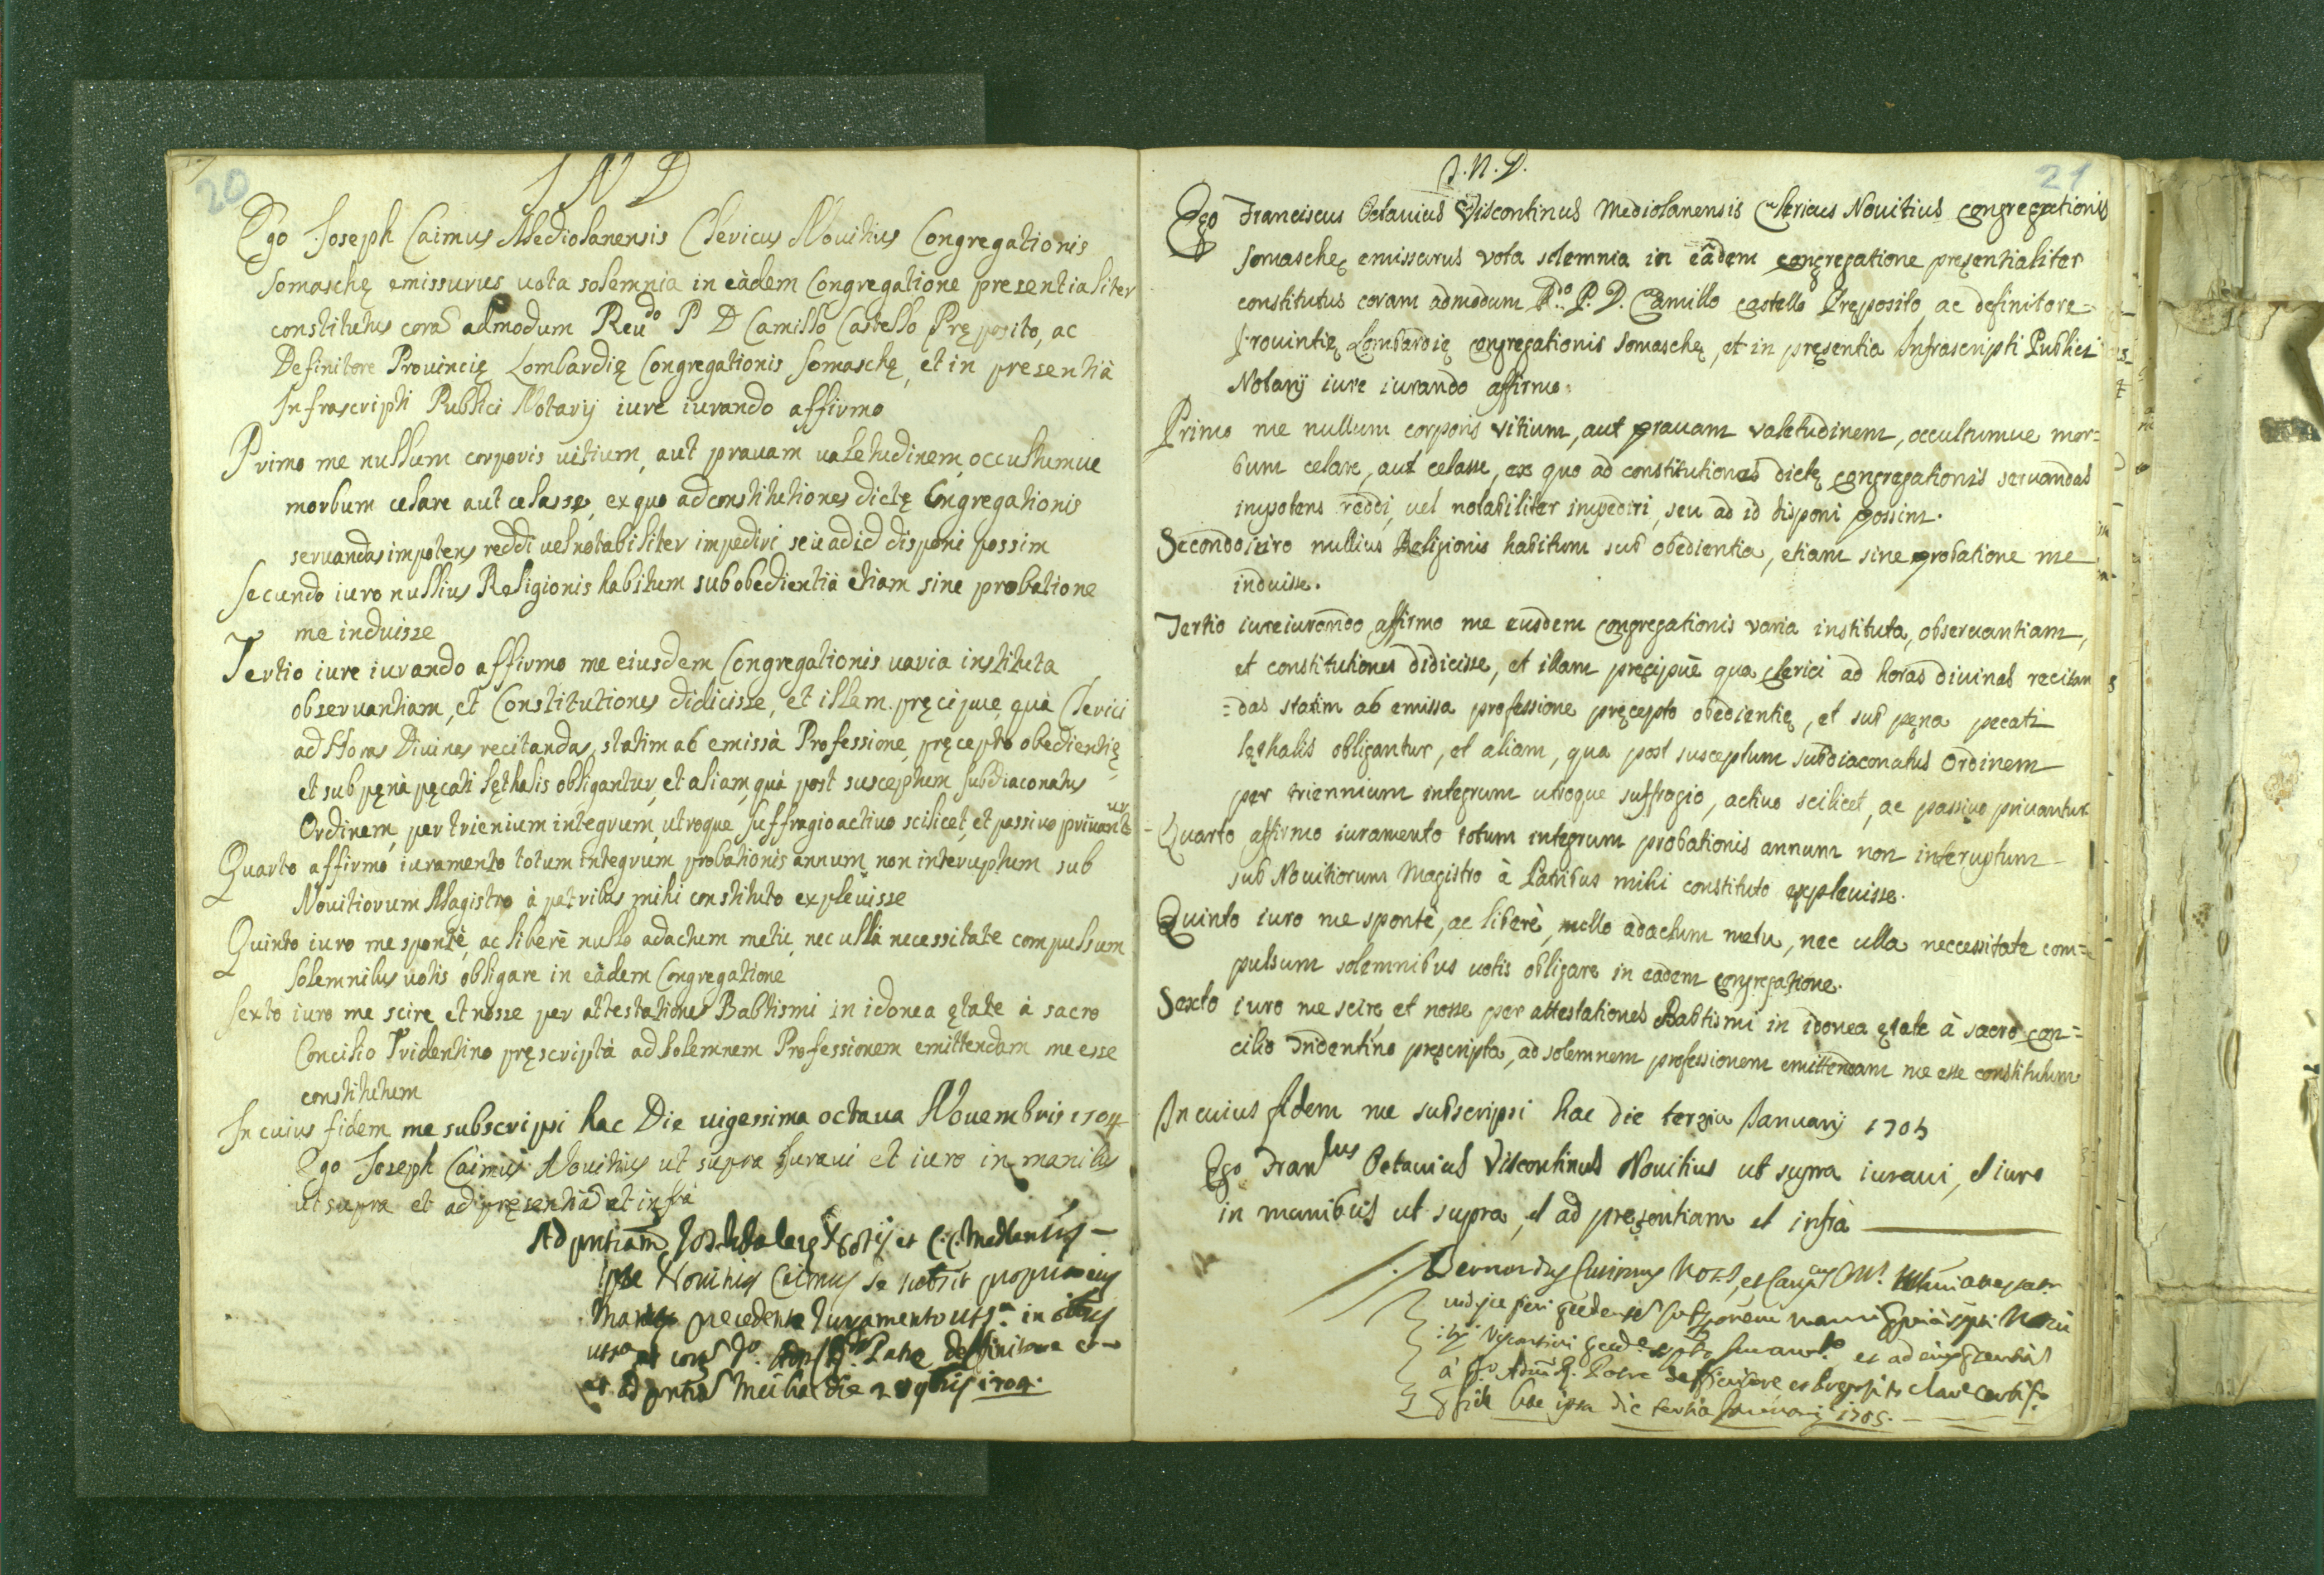 20
I N D
Ego Joseph Caimus Mediolanensis Clericus Novitius Congregationis
Somaschę emissurus uota solemnia in eàdem Congregatione presentialiter
constitutus corã admodum Reudo P D Camillo Castello Pręposito, ac
Definitore Prouincię Lombardię Congregationis Somaschę, et in presentià
Infrascripti Publici Notarij iure iurando affirmo
Primo me nullum corporis uitium, aut prauam ualetudinem, occultumue
morbum celare aut celasse, ex quo ad constitutiones dictę Congregationis
seruandas impotens reddi uel notabiliter impediri seù ad id disponi possim
Secundo iuro nullius Religionis habitum sub obedientià etiam sine probatione
me induisse
Tertio iure iurando affirmo me eiusdem Congregationis uaria instituta
obseruantiam, et Constitutiones didicisse, et illam pręcipue, quà Clerici
ad Horas Diuinas recitandas, statim ab emissà Professione, pręcepto obedientię
et sub pęnà pęcati lęthalis obligantur, et aliam, quà post susceptum Subdiaconatus
Ordinem, per trienium integrum, utroque suffragio actiuo scilicet, et passiuo priuantur
Quarto affirmo iuramento totum integrum probationis annum non interuptum sub
Nouitiorum Magistro à patribus mihi constituto expleuisse
Quinto iuro me spontè, ac liberè nullo adactum metu, nec ullà necessitate compulsum
solemnibus uotis obligare in eàdem Congregatione
Sexto iuro me scire, et nosse per attestationes Babtismi in idonea ętate à sacro
Concilio Tridentino pręscriptà ad solemnem Professionem emittendam me esse
constitutum
In cuius fidem me subscripsi hac Die uigessima octaua Nouembris 1704
Ego Joseph Caimus Nouitius ut supra Iuraui et iuro in manibus
ut supra et ad pręsentiã et infrà
Ad pntiam
Ipse Novitius Caimus se
precedente Iuramento
Patre Deffinitore et
die 28 9bris 1704.
21
I. N. D.
Ego Franciscus Octauius Viscontinus Mediolanensis Clericus Nouitius congregationis
Somaschę emissurus vota solemnia in eâdem congregatione pręsentialiter
constitutus coram admodum Rdo P. D. Camillo castello Pręposito, ac definitore
Prouintię Lombardię congregationis Somaschę, et in pręsentia Infrascripti Publici
Notarij iure iurando affirmo.
Primo me nullum corporis vitium, aut prauam valetudinem, occultumue mor=
bum celare, aut celasse, ex quo ad constitutiones dictę congregationis seruandas
impotens reddi, uel notabiliter impediri, seu ad id disponi possim.
Secondo iuro nullius Religionis habitum sub obedientia, etiam sine probatione me
induisse.
Tertio iureiurando affirmo me eiusdem congregationis varia instituta, obseruantiam,
et constitutiones didicisse, et illam pręcipuè qua clerici ad horas diuinas recitan
=das statim ab emissa professione pręcepto obedientię, et sub pęna pecati
lęthalis obligantur, et aliam, qua post susceptum subdiaconatus Ordinem
per triennium integrum utroque suffragio, actiuo scilicet, ac passiuo priuantur
Quarto affirmo iuramento totum integrum probationis annum non interuptum
sub Nouitiorum Magistro à Patribus mihi constituto expleuisse.
Quinto iuro me spontè, ac liberè, nullo adactum metu, nec ulla neccessitate com=
pulsum solemnibus uotis obligare in eadem congregatione.
Sexto iuro me scire, et nosse per attestationes Babtismi in idonea ętate à sacro con=
cilio Tridentino pręscripta, ad solemnem professionem emittendam me esse constitutum
In cuius fidem me subscripsi hac die terzia Ianuarij 1705
Ego Franlus Octauius Viscontinus Nouitius ut supra iuraui, et iuro
in manibus ut supra, et ad pręsentiam et infrà
Bernardus
et ad
à Patre Deffinitore, et
hac ipsa die tertia Januarij 1705.